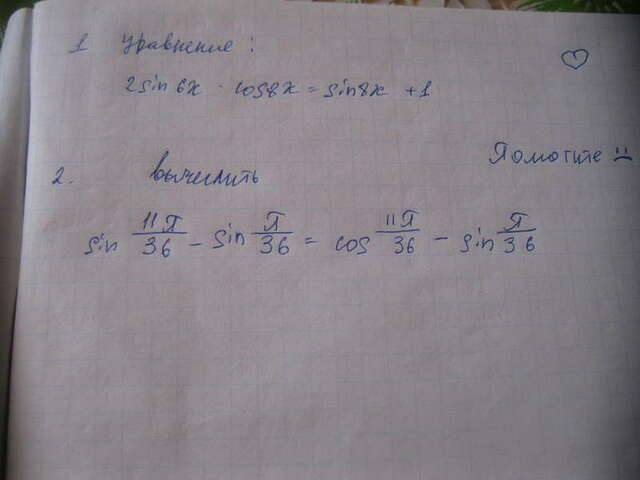 1 Уравнение :
2sin 6x · cos8x = sin8x + 1
Помогите
2. вычислить
sin 11π/36 - sin π/36 = cos 11π/36 - sin π/36